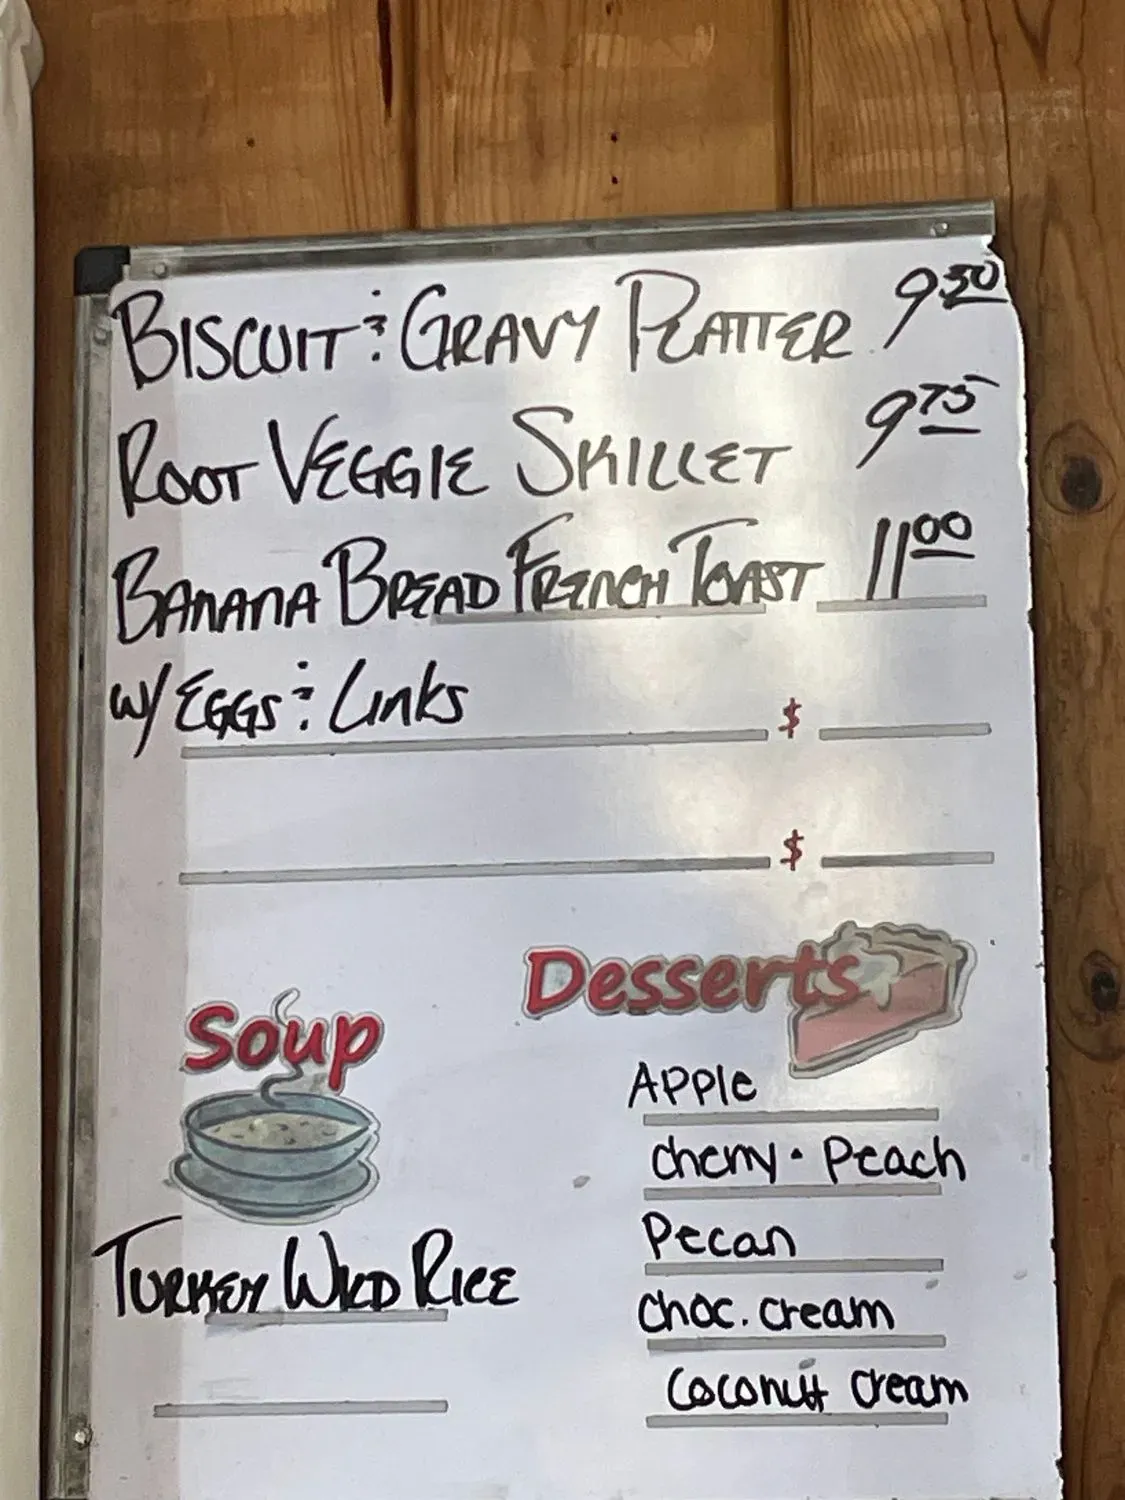 BISCUIT & GRAVY PLATTER 9.50
ROOT VEGGIE SKILLET 9 75
BANANA BREAD FRENCH TOAST 11 00
w/ EGGS & LINKS $
$
Desserts
Soup
APPLE
cherry · Peach
Pecan
TURKEY WILD RICE
choc. cream
coconut cream